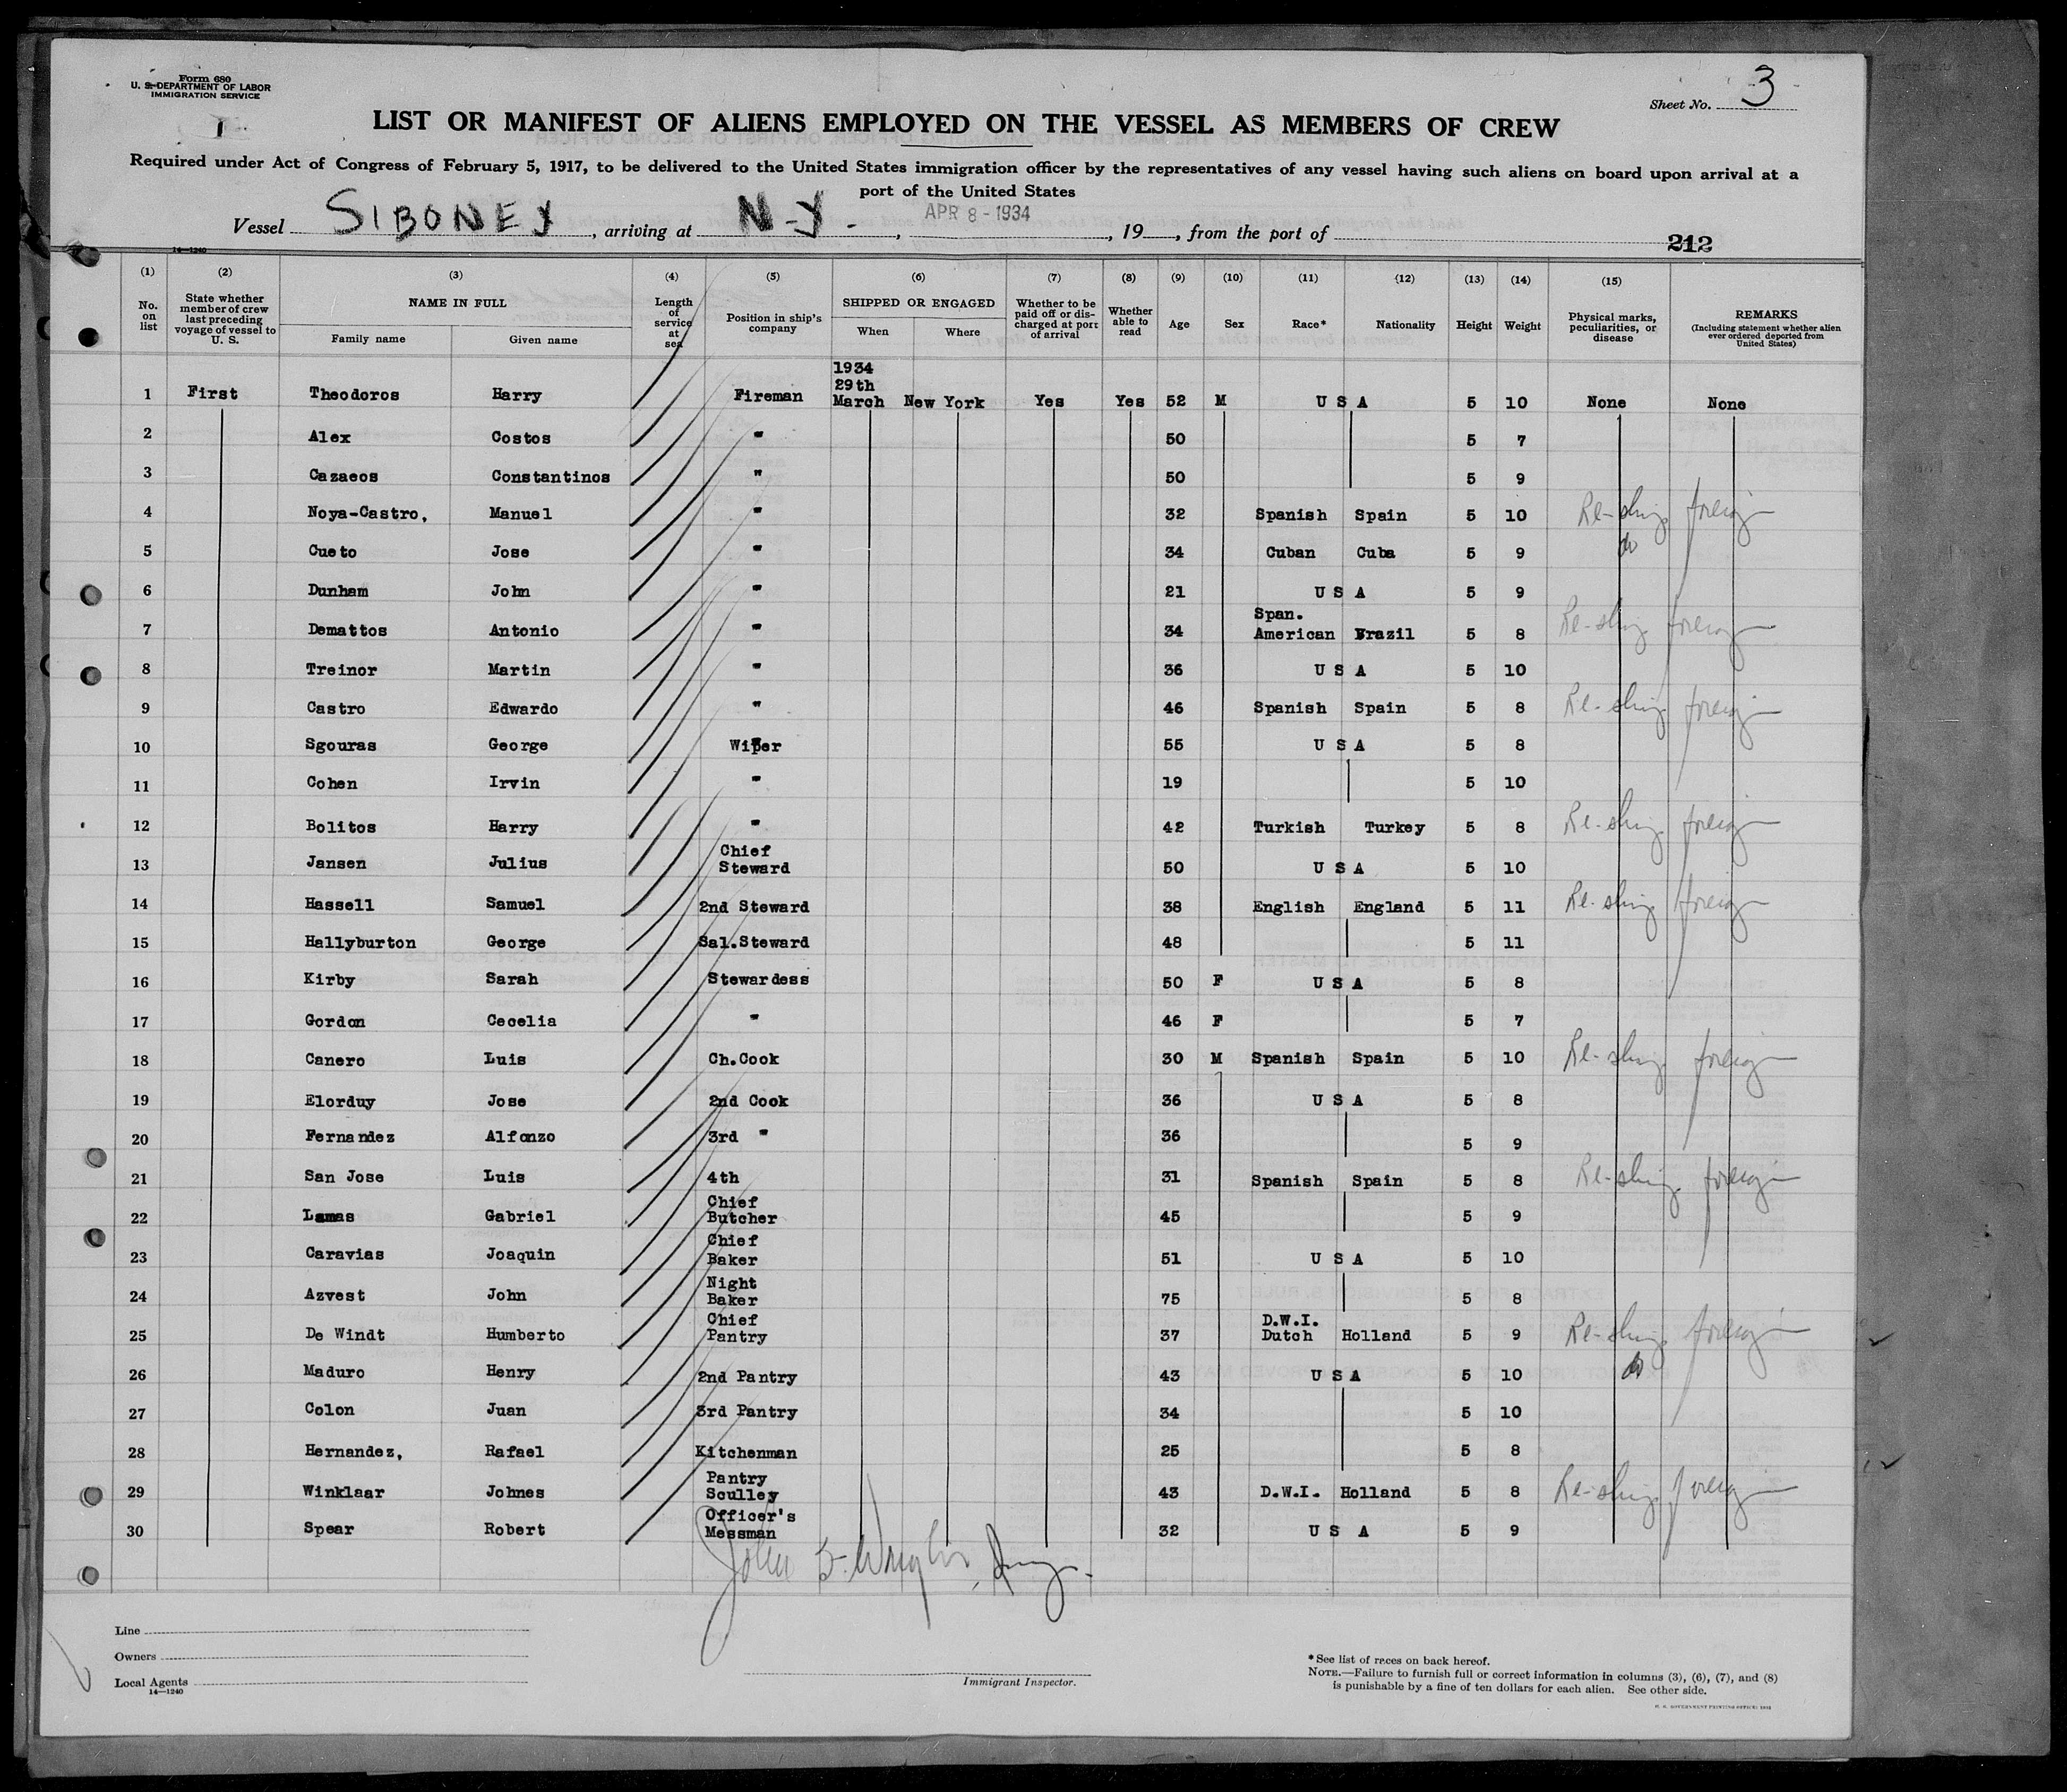 Form 680
U. S. DEPARTMENT OF LABOR
IMMIGRATION SERVICE
Sheet No. 3
LIST OR MANIFEST OF ALIENS EMPLOYED ON THE VESSEL AS MEMBERS OF CREW
Required under Act of Congress of February 5, 1917, to be delivered to the United States immigration officer by the representatives of any vessel having such aliens on board upon arrival at a
port of the United States
Vessel SIBONEY, arriving at N-Y-, APR 8-1934, 19, from the port of
14—1240 212
(1) (2) (3) (4) (5) (6) (7) (8) (9) (10) (11) (12) (13) (14) (15)
No. on list
State whether member of crew last preceding voyage of vessel to U. S.
NAME IN FULL
Family name Given name
Length of service at sea
Position in ship's company
SHIPPED OR ENGAGED
When Where
Whether to be paid off or discharged at port of arrival
Whether able to read
Age
Sex
Race*
Nationality
Height
Weight
Physical marks, peculiarities, or disease
REMARKS
(Including statement whether alien ever ordered deported from United States)
1 First Theodoros Harry Fireman 1934 29th March New York Yes Yes 52 M U S A 5 10 None None
2 Alex Costos " 50 5 7
3 Cazaeos Constantinos " 50 5 9
4 Noya-Castro, Manuel " 32 Spanish Spain 5 10 Re-shipg foreign
5 Cueto Jose " 34 Cuban Cuba 5 9 do
6 Dunham John " 21 U S A 5 9
7 Demattos Antonio " 34 Span. American Brazil 5 8 Re-shipg foreign
8 Treinor Martin " 36 U S A 5 10
9 Castro Edwardo " 46 Spanish Spain 5 8 Re-shipg foreign
10 Sgouras George Wiper 55 U S A 5 8
11 Cohen Irvin " 19 5 10
12 Bolitos Harry " 42 Turkish Turkey 5 8 Re-shipg foreign
13 Jansen Julius Chief Steward 50 U S A 5 10
14 Hassell Samuel 2nd Steward 38 English England 5 11 Re-shipg foreign
15 Hallyburton George Sal.Steward 48 5 11
16 Kirby Sarah Stewardess 50 F U S A 5 8
17 Gordon Cecelia " 46 F 5 7
18 Canero Luis Ch.Cook 30 M Spanish Spain 5 10 Re-shipg foreign
19 Elorduy Jose 2nd Cook 36 U S A 5 8
20 Fernandez Alfonzo 3rd " 36 5 9
21 San Jose Luis 4th 31 Spanish Spain 5 8 Re-shipg foreign
22 Lamas Gabriel Chief Butcher 45 5 9
23 Caravias Joaquin Chief Baker 51 U S A 5 10
24 Azvest John Night Baker 75 5 8
25 De Windt Humberto Chief Pantry 37 D.W.I. Dutch Holland 5 9 Re-shipg foreign
26 Maduro Henry 2nd Pantry 43 U S A 5 10 do
27 Colon Juan 3rd Pantry 34 5 10
28 Hernandez, Rafael Kitchenman 25 5 8
29 Winklaar Johnes Pantry Sculley 43 D.W.I. Holland 5 8 Re-shipg foreign
30 Spear Robert Officer's Messman 32 U S A 5 9
John
Line
Owners
Local Agents
14—1240
Immigrant Inspector.
*See list of races on back hereof.
NOTE.—Failure to furnish full or correct information in columns (3), (6), (7), and (8)
is punishable by a fine of ten dollars for each alien. See other side.